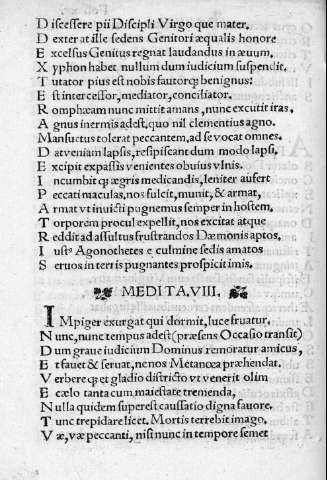 D iscessere pii Discipli Virgo que mater.
D exter at ille sedens Genitori æqualis honore
E xcelsus Genitus regnat laudandus in æuum.
X yphon habet nullum dum iudicium suspendit.
T utator pius est nobis fautorq; benignus:
E st intercessor, mediator, conciliator.
R omphæam nunc mittit amans, nunc excutit iras,
A gnus inermis adest, quo nil clementius agno.
M ansuetus tolerat peccantem, ad se vocat omnes.
D at veniam lapsis, resipiscant dum modo lapsi,
E xcipit expassis venientes obuius vlnis.
I ncumbit q; ægris medicandis, leniter aufert
P eccati maculas, nos fulcit, munit, & armat,
A rmat vt inuicti pugnemus semper in hostem.
T orporem procul expellit, nos excitat atque
R eddit ad assultus frustrandos Dæmonis aptos.
I ustꝰ Agonothetes e culmine sedis amatos
S eruos in terris pugnantes prospicit imis.
MEDITA. VIII.
I Mpiger exurgat qui dormit, luce fruatur.
N unc, nunc tempus adest (præsens Occasio transit)
D um graue iudicium Dominus remoratur amicus,
E t fauet & seruat, ne nos Metanœa præhendat.
V erbere q; et gladio districto vt venerit olim
E cælo tanta cum maiestate tremenda,
N ulla quidem superest caussatio digna fauore.
T unc trepidare licet. Mortis terrebit imago.
V æ, væ peccanti, nisi nunc in tempore semet